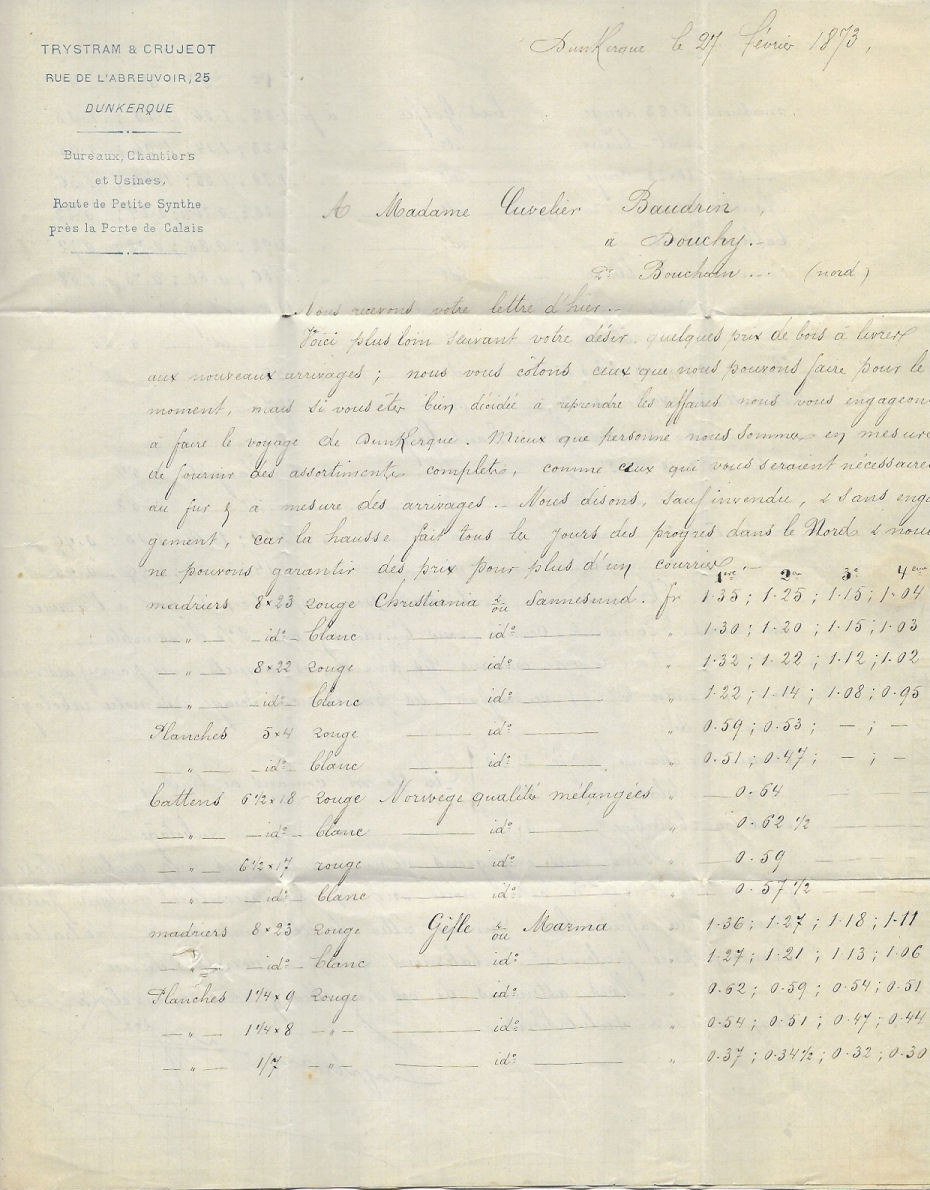 TRYSTRAM & CRUJEOT
RUE DE L'ABREUVOIR, 25
DUNKERQUE
Bureaux, Chantiers
et Usines,
Route de Petite Synthe
près la Porte de Calais
Dunkerque le 27 février 1873,
A Madame Cuvelier Baudrin,
a Douchy.-
Bouchain ... (nord)
Nous recevons votre lettre d'hier.-
Voici plus loin suivant votre désir quelques prix de bois à livrer
aux nouveaux arrivages ; nous vous côtons ceux que nous pouvons faire pour le
moment, mais si vous êtes bien décidée à reprendre les affaires nous vous engageon
à faire le voyage de Dunkerque. Mieux que personne nous sommes en mesure
de fournir des assortiments complets, comme ceux qui vous seraient nécessaires
au fur & a mesure des arrivages.- Nous disons, sauf invendu, & sans enga
gement, car la hausse fait tous les jours des progres dans le Nord & nous
ne pouvons garantir des prix pour plus d'un courrier.-
1re 2e 3e 4eme
madriers 8x23 rouge Christiania & ou Sannesund. fr 1.35 ; 1.25 ; 1.15 ; 1.04
— " — — ido — blanc — ido — " 1.30 ; 1.20 ; 1.15 ; 1.03
— " — 8x22 rouge — ido — " 1.32 ; 1.22 ; 1.12 ; 1.02
— " — — ido — blanc — ido — " 1.22 ; 1.14 ; 1.08 ; 0.95
Planches 5x4 rouge — ido — " 0.59 ; 0.53 ; — ; —
— " — — ido — blanc — ido — " 0.51 ; 0.47 ; — ; —
battens 6 1/2 x 18 rouge Norwege qualité mélangées " — 0.64 —
— " — — ido — blanc — ido — " 0.62 1/2 —
— " — 6 1/2 x 17 rouge — ido — " 0.59 —
— " — — ido — blanc — ido — " 0.57 1/2 —
madriers 8x23 rouge Gefle & ou Marma " 1.36 ; 1.27 ; 1.18 ; 1.11
— " — — ido — blanc — ido — " 1.27 ; 1.21 ; 1.13 ; 1.06
Planches 1 1/4 x 9 rouge — ido — " 0.62 ; 0.59 ; 0.54 ; 0.51
— " — 1 1/4 x 8 — " — — ido — " 0.54 ; 0.51 ; 0.47 ; 0.44
— " — 1/7 — " — — ido — " 0.37 ; 0.34 1/2 ; 0.32 ; 0.30